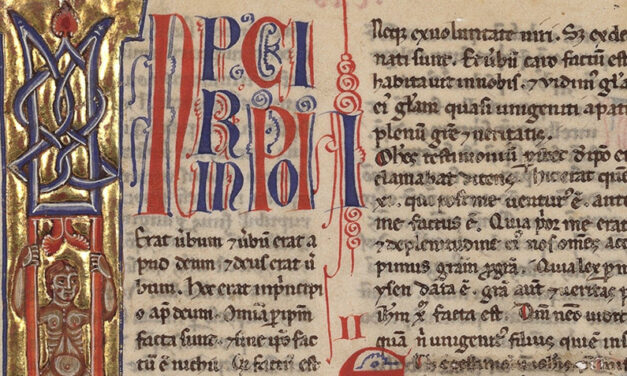 N P CI
R PI
IN O I
Erat ũbum ⁊ ũbũ erat a
pud deum ⁊ deus erat ũ
bum. Hoc erat inprincipi
o ap̃ deum. Omĩa p ipm̃
facta sunt. ⁊ sine ipõ fac
tũ ẽ nichil. Qđ factũ est
II
Neq; exuoluntate uiri. Sz ex de
nati sunt. Et ũbũ caro factũ est
habitauit innobis. ⁊ uidim' gl̃a
ei' gl̃am quasi unigeniti apat
plenũ gr̃e ⁊ ueritatis.
testimoniũ dipõ et
clamabat dicens. hic erat quẽ
xi. que post me uentur' ẽ. ante
me factus ẽ. Quia p̃or me erat
⁊ deplenitudine ei' nos om̃es acce
pimus gr̃am pgr̃a. Quia lex p
ysen data ẽ. gr̃a aũt ⁊ ueritas p
facta est. Dm̃ nẽo uidit
quã ñ unigenit' filius qui ẽ ins